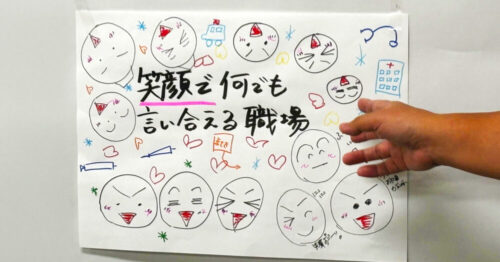 笑顔で何でも
言い合える職場